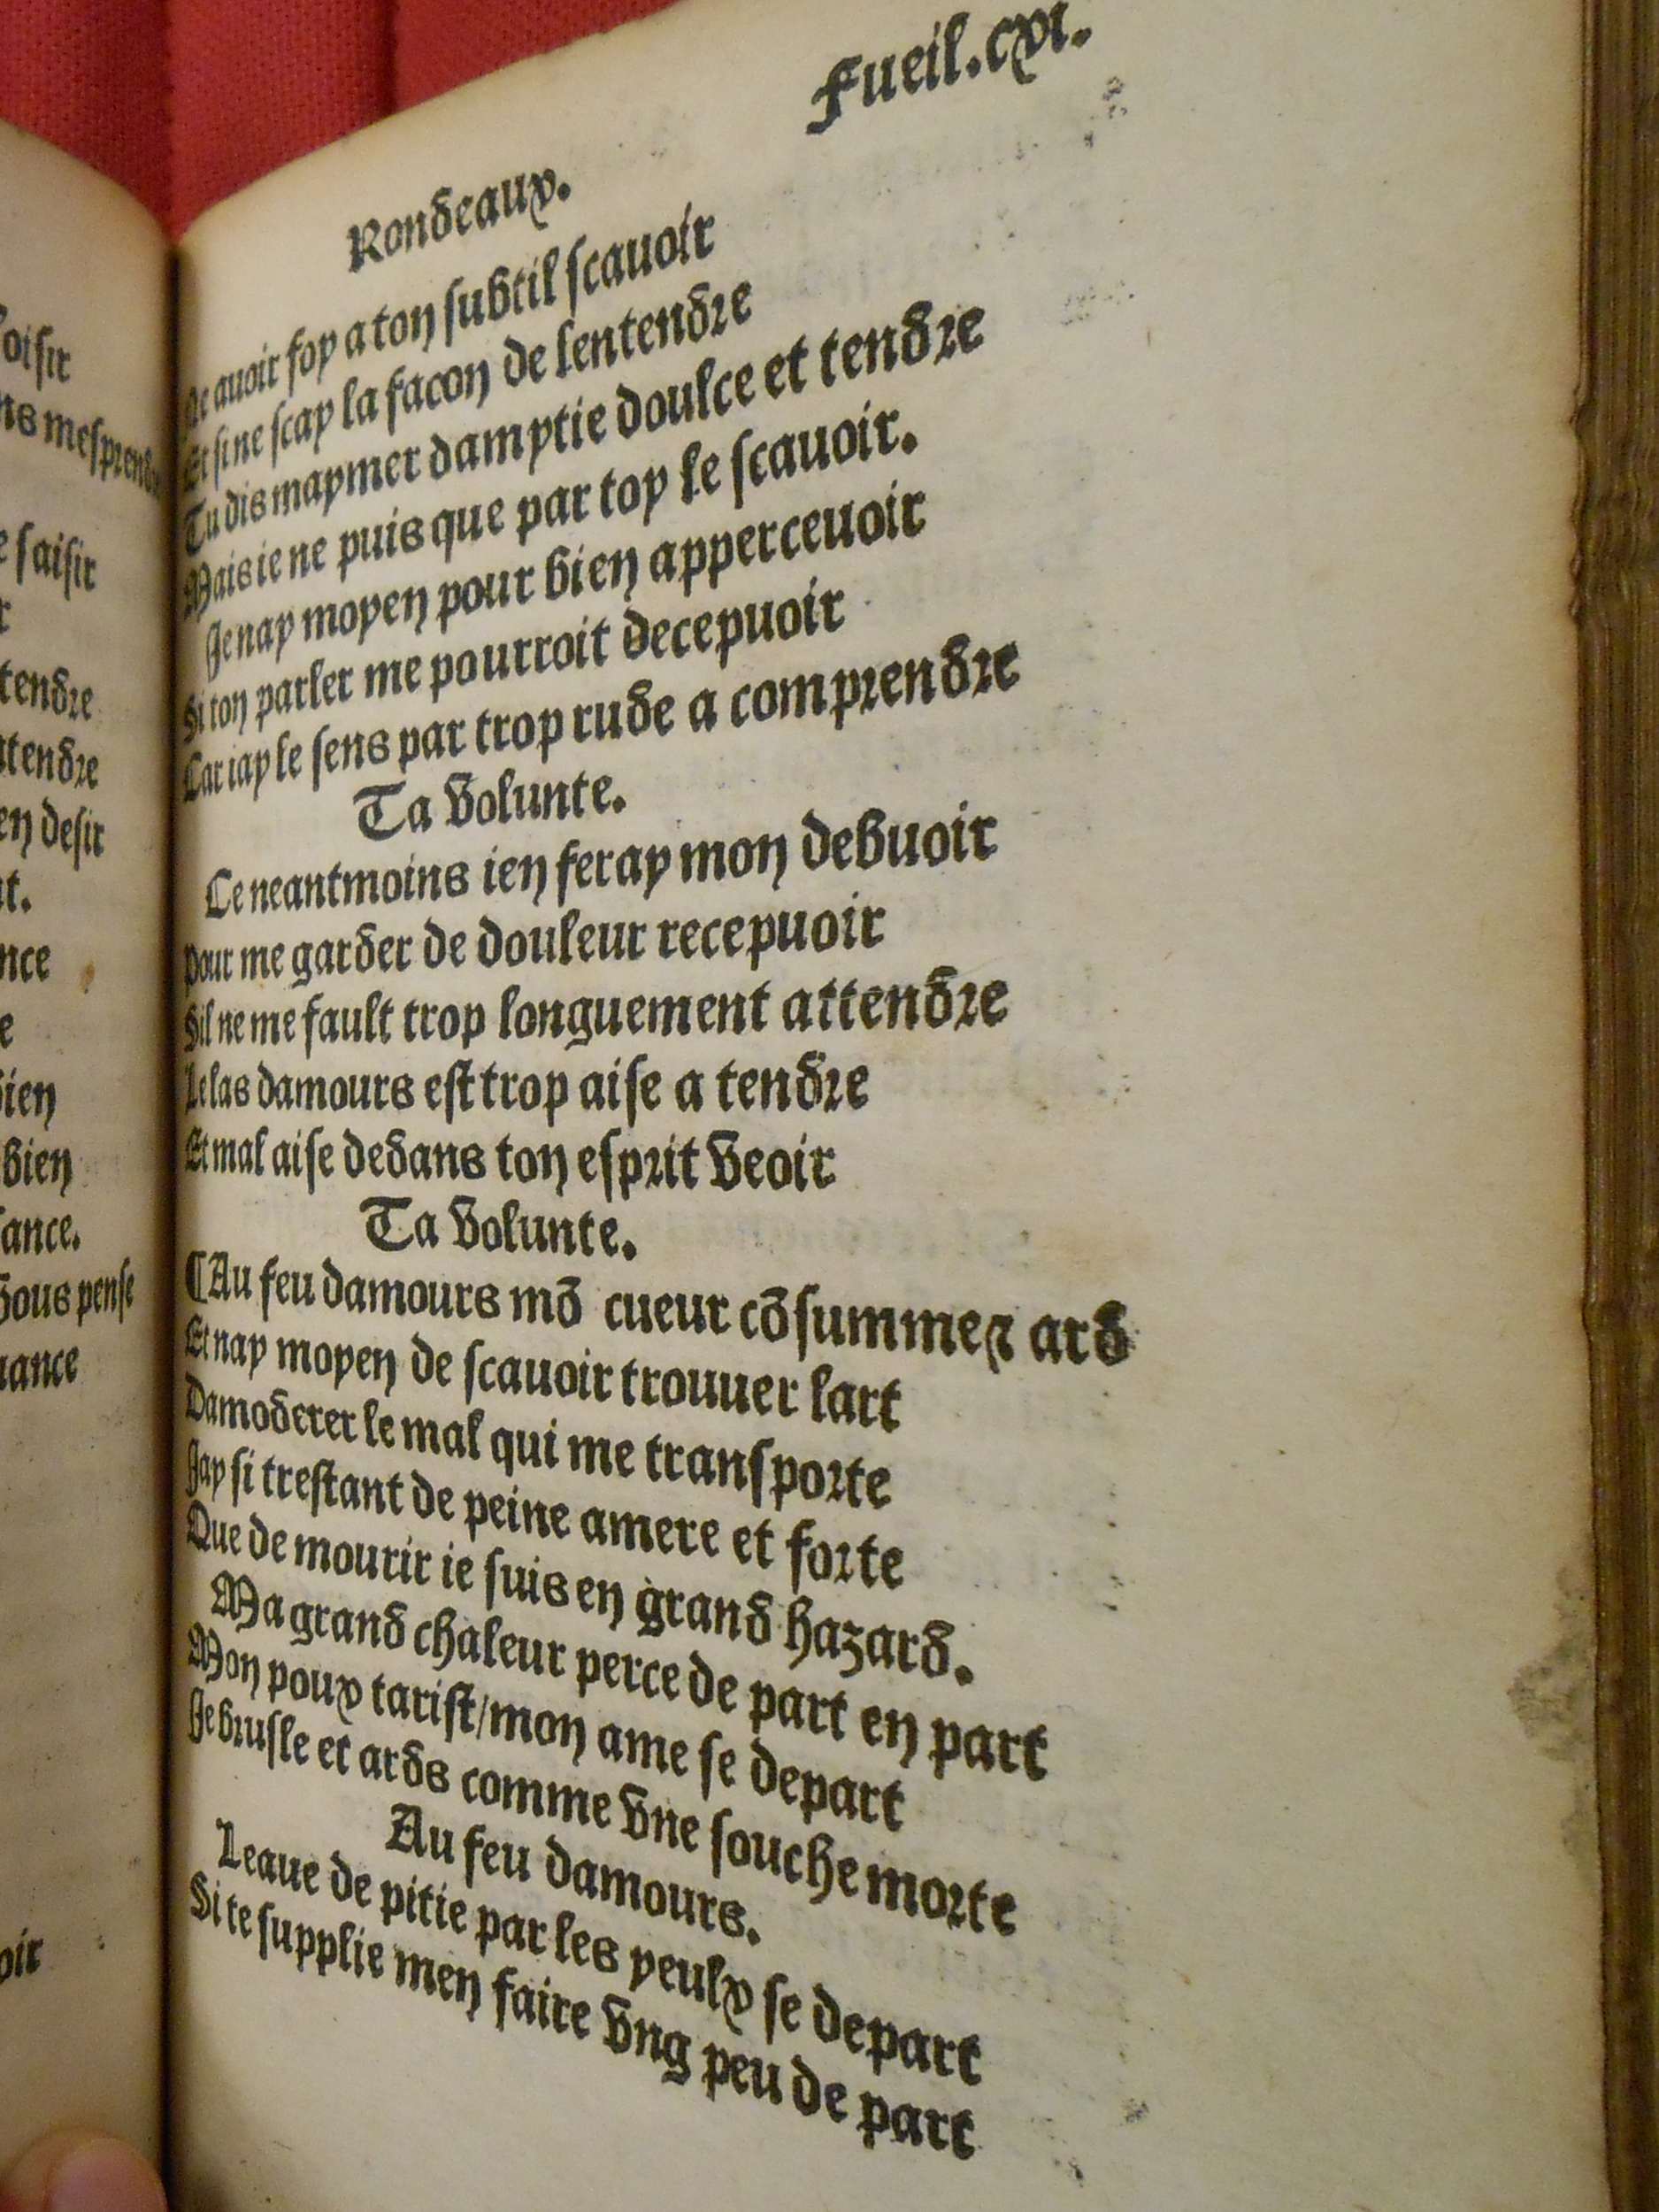 oisir
ns mesprendre
e saisir
r
tendre
ttendre
en desir
nt.
nce
e
bien
bien
sance.
vous pense
uance
oir
Fueil.cxvi.
Rondeaux.
De auoir foy a ton subtil scauoir
Et si ne scay la facon de lentendre
Tu dis maymer damytie doulce et tendre
Mais ie ne puis que par toy le scauoir.
Je nay moyen pour bien apperceuoir
Si ton parler me pourroit decepuoir
Car iay le sens par trop rude a comprendre
Ta volunte.
Ce neantmoins ien feray mon debuoir
Pour me garder de douleur recepuoir
Sil ne me fault trop longuement attendre
Le las damours est trop aise a tendre
Et mal aise dedans ton esprit veoir
Ta volunte.
¶Au feu damours mõ cueur cõsumme ⁊ ard
Et nay moyen de scauoir trouuer lart
Damoderer le mal qui me transporte
Jay si trestant de peine amere et forte
Que de mourir ie suis en grand hazard.
Ma grand chaleur perce de part en part
Mon poux tarist/mon ame se depart
Je brusle et ards comme vne souche morte
Au feu damours.
Leaue de pitie par les yeulx se depart
Si te supplie men faire vng peu de part